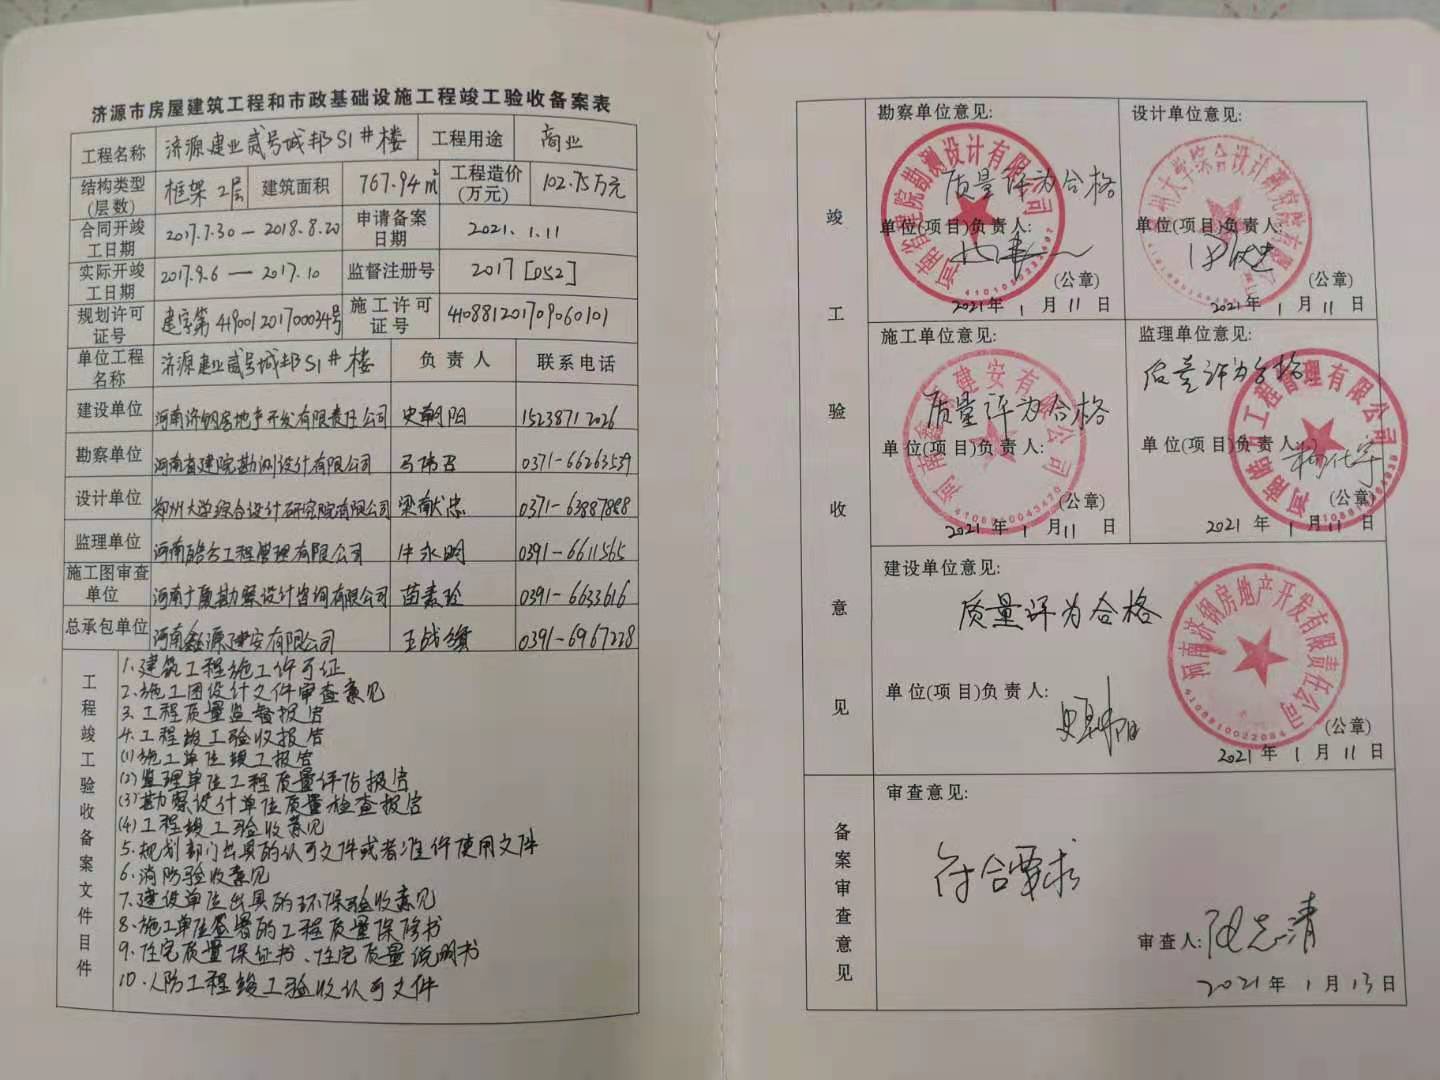 济源市房屋建筑工程和市政基础设施工程竣工验收备案表
工程名称 济源建业贰号城邦S1#楼 工程用途 商业
结构类型(层数) 框架2层 建筑面积 767.94㎡ 工程造价(万元) 102.75万元
合同开竣工日期 2017.7.30—2018.8.20 申请备案日期 2021.1.11
实际开竣工日期 2017.9.6—2017.10 监督注册号 2017[052]
规划许可证号 建字第419001201700034号 施工许可证号 410881201709060101
单位工程名称 济源建业贰号城邦S1#楼 负责人 联系电话
建设单位 河南济钢房地产开发有限责任公司 史朝阳 15238712026
勘察单位 河南省建院勘测设计有限公司 0371-66263539
设计单位 郑州大学综合设计研究院有限公司 梁献忠 0371-63887888
监理单位 河南皓古工程管理有限公司 牛永明 0391-6611565
施工图审查单位 河南广厦勘察设计咨询有限公司 苗素珍 0391-6633616
总承包单位 河南鑫源建安有限公司 0391-6967228
工程竣工验收备案文件目件
1.建筑工程施工许可证
2.施工图设计文件审查意见
3.工程质量监督报告
4.工程竣工验收报告
(1)施工单位竣工报告
(2)监理单位工程质量评估报告
(3)勘察设计单位质量检查报告
(4)工程竣工验收意见
5.规划部门出具的认可文件或者准许使用文件
6.消防验收意见
7.建设单位出具的环保验收意见
8.施工单位签署的工程质量保修书
9.住宅质量保证书、住宅质量说明书
10.人防工程竣工验收认可文件
竣工验收意见
勘察单位意见:
质量评为合格
单位(项目)负责人:
(公章)
2021年1月11日
河南省建院勘测设计有限公司
设计单位意见:
单位(项目)负责人:
(公章)
2021年1月11日
郑州大学综合设计研究院有限公司
施工单位意见:
质量评为合格
单位(项目)负责人:
(公章)
2021年1月11日
河南鑫源建安有限公司
4108810043470
监理单位意见:
质量评为合格
单位(项目)负责人:
(公章)
2021年1月11日
建设单位意见:
质量评为合格
单位(项目)负责人:
史朝阳
(公章)
2021年1月11日
河南济钢房地产开发有限责任公司
4108810022084
备案审查意见
审查意见:
符合要求
审查人:
2021年1月13日